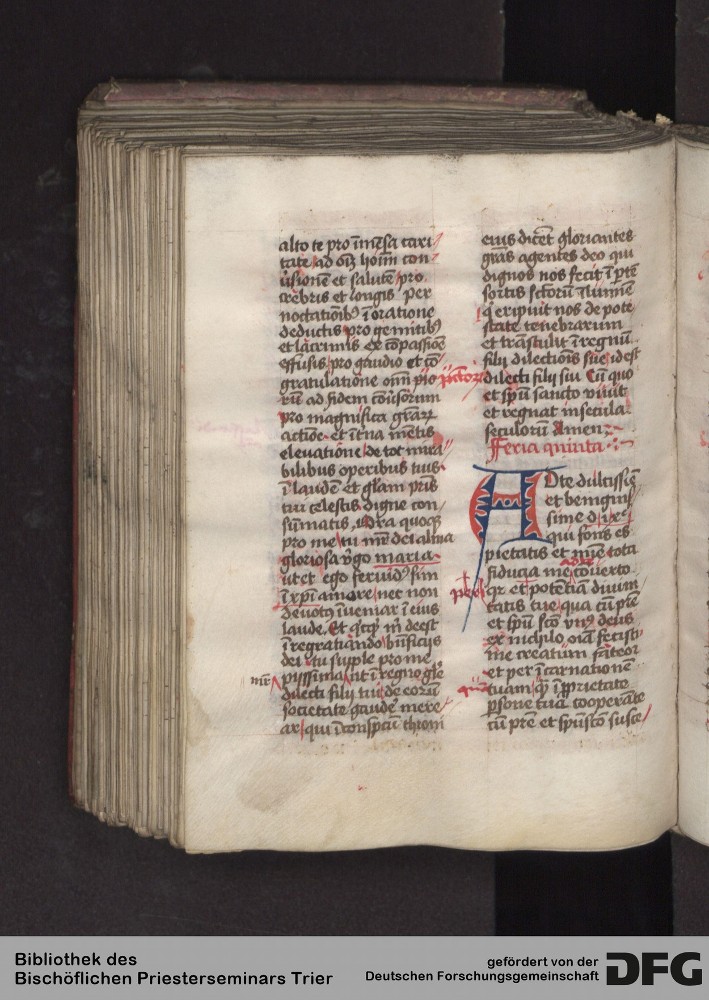 alto te pro īmēsa cari
tate ad oēs hoīm con
ūsionē et salutē pro
crebris et longis per
noctationibꝰ ī oratione
deductis pro gemitibꝰ
et lacrimis ex cōpassiōe
effusis pro gaudio et cō
gratulatione om̄i
ad fidem cōūsorum
pro magnifica grāꝝ
actiōe et ītna mētis
elevatiōne de tot mira
bilibus operibus tuis
ī laudē et glām pr̄is
tui celestis digne con
sūmatis Ora quoqꝫ
pro me tu mr̄ dei alma
gloriosa v̄go maria
ut et ego fervidꝰ sim
ī xp̄i amore nec non
devotꝰ īveniar ī eius
laude Et qͥcqͥd m̄ deest
ī regratiando bn̄ficiis
dei tu supple pro me
piissima ut ī regno glē
mr̄
dilecti filii tui de eorū
societate gaudē mere
ar qui ī cōspc̄tu throni
eius dicēt gloriantes
grās agentes deo qui
dignos nos fecit ī ptē
sortis sctōrū ī lumīe
qͥ eripuit nos de pote
state tenebrarum
et trāstulit ī regnū
filii dilectiōnis sue idest
dilecti filii sui Cū quo
et spū sancto vivit
et regnat in secula
seculorū Amen
Feria quinta
ADte dulcissiē
et benignis
sime
qui fons es
pietatis et mīe tota
fiducia me cōverto
qr et potētiā divini
tatis tue qua cū prē
et spū scō vnꝰ deus
ex nichilo oīa fecisti
me creatum fateor
et per īcarnationē
tuam qͣ ī prietate
psone tua cooperāte
cū prē et spū scō susce
Bibliothek des
Bischöflichen Priesterseminars Trier
gefördert von der
Deutschen Forschungsgemeinschaft
DFG